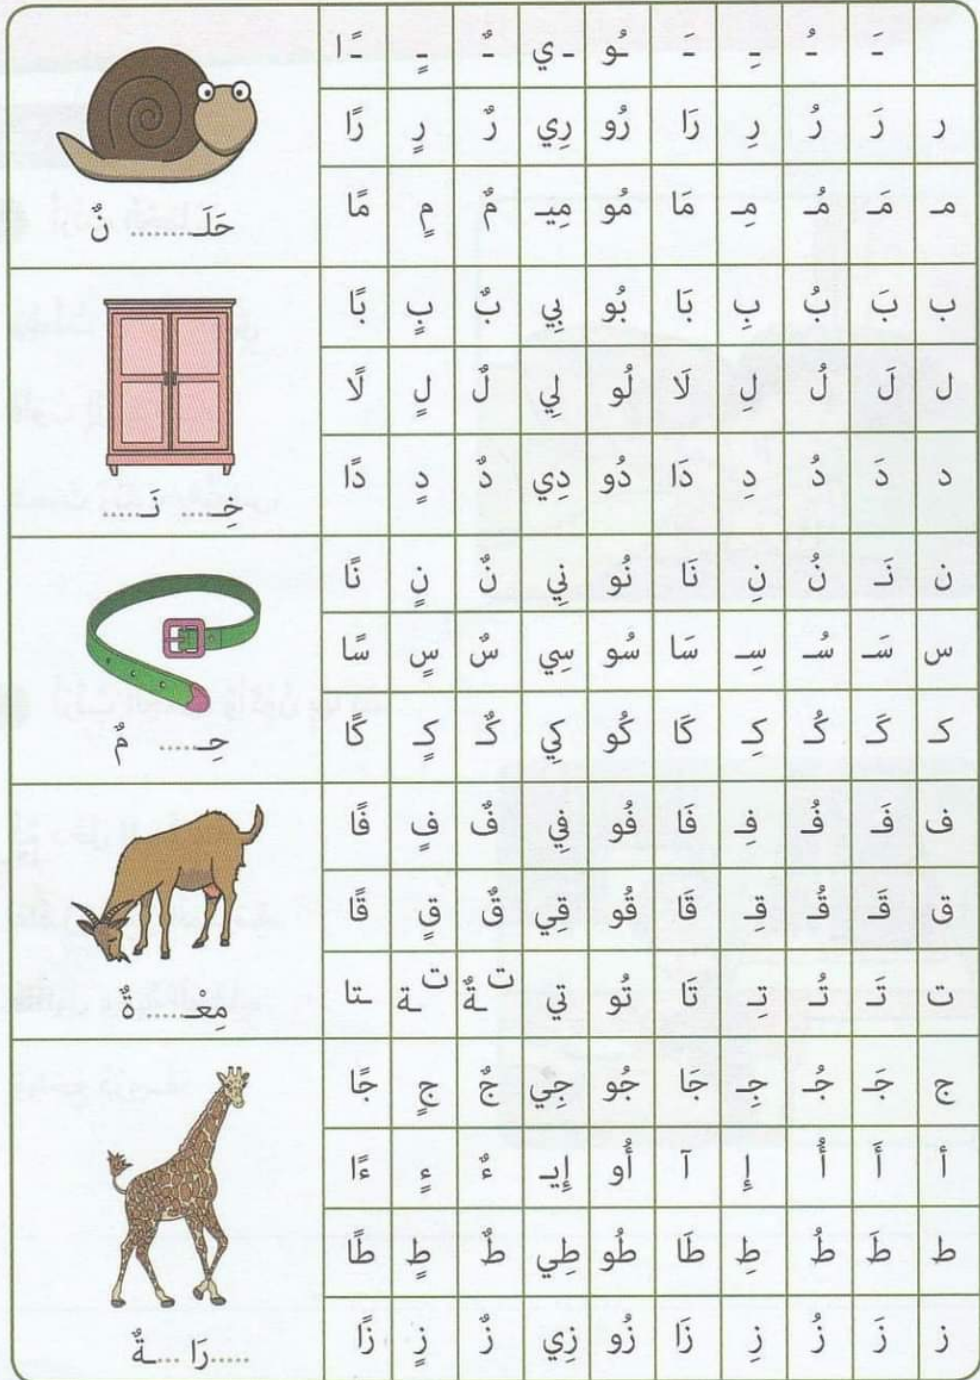 ـَ ـُ ـِ ـَ ـُو ـِي ـٌ ـٍ ـًا
ر رَ رُ رِ رَا رُو رِي رٌ رٍ رًا
مـ مَـ مُـ مِـ مَا مُو مِيـ مٌ مٍ مًا
حَلَـ........ نٌ
ب بَ بُ بِ بَا بُو بِي بٌ بٍ بًا
ل لَ لُ لِ لَا لُو لِي لٌ لٍ لًا
د دَ دُ دِ دَا دُو دِي دٌ دٍ دًا
خِـ..... نَـ.....
ن نَـ نُ نِ نَا نُو نِي نٌ نٍ نًا
س سَـ سُـ سِـ سَا سُو سِي سٌ سٍ سًا
كـ كَـ كُـ كِـ كَا كُو كِي كٌـ كٍـ كًا
حِـ..... مٌ
ف فَـ فُـ فِـ فَا فُو فِي فٌ فٍ فًا
ق قَـ قُـ قِـ قَا قُو قِي قٌ قٍ قًا
ت تَـ تُـ تِـ تَا تُو تِي ت ـةٌ ت ـة ـتا
مِعْـ..... ةٌ
ج جَـ جُـ جِـ جَا جُو جِي جٌ جٍ جًا
أ أَ أُ إِ آ أُو إِيـ ءٌ ءٍ ءًا
ط طَ طُ طِ طَا طُو طِي طٌ طٍ طًا
ز زَ زُ زِ زَا زُو زِي زٌ زٍ زًا
.....رَا ...ـةٌ